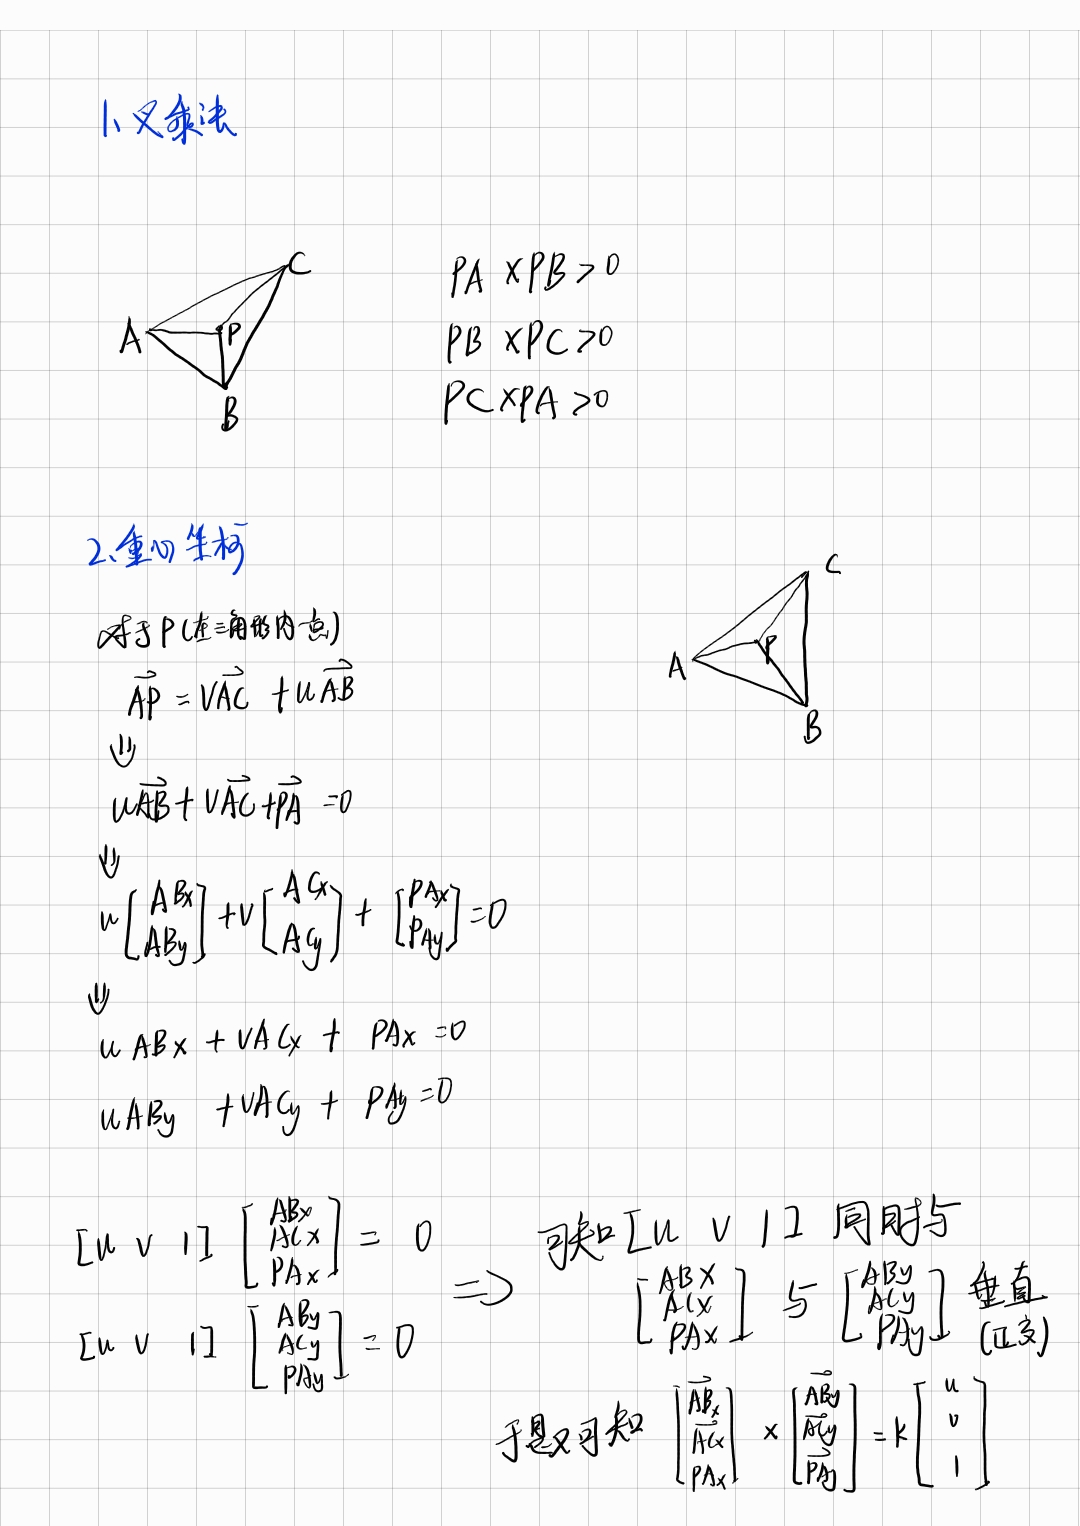 1、叉乘法
C
A
P
B
PA ×PB>0
PB ×PC>0
PC×PA>0
2、重心坐标
C
A
P
B
对于P(在三角形内一点)
AP = VAC + uAB
⇓
uAB + VAC + PA =0
⇓
u [ABx ABy] + v [ACx ACy] + [PAx PAy] =0
⇓
u ABx + VACx + PAx =0
uABy + VACy + PAy =0
[u v 1] [ABx ACx PAx] = 0
[u v 1] [ABy ACy PAy] = 0
⇒
可知[u v 1] 同时与
[ABx ACx PAx] 与 [ABy ACy PAy] 垂直
(正交)
于是又可知 [ABx ACx PAx] × [ABy ACy PAy] = k [u v 1]